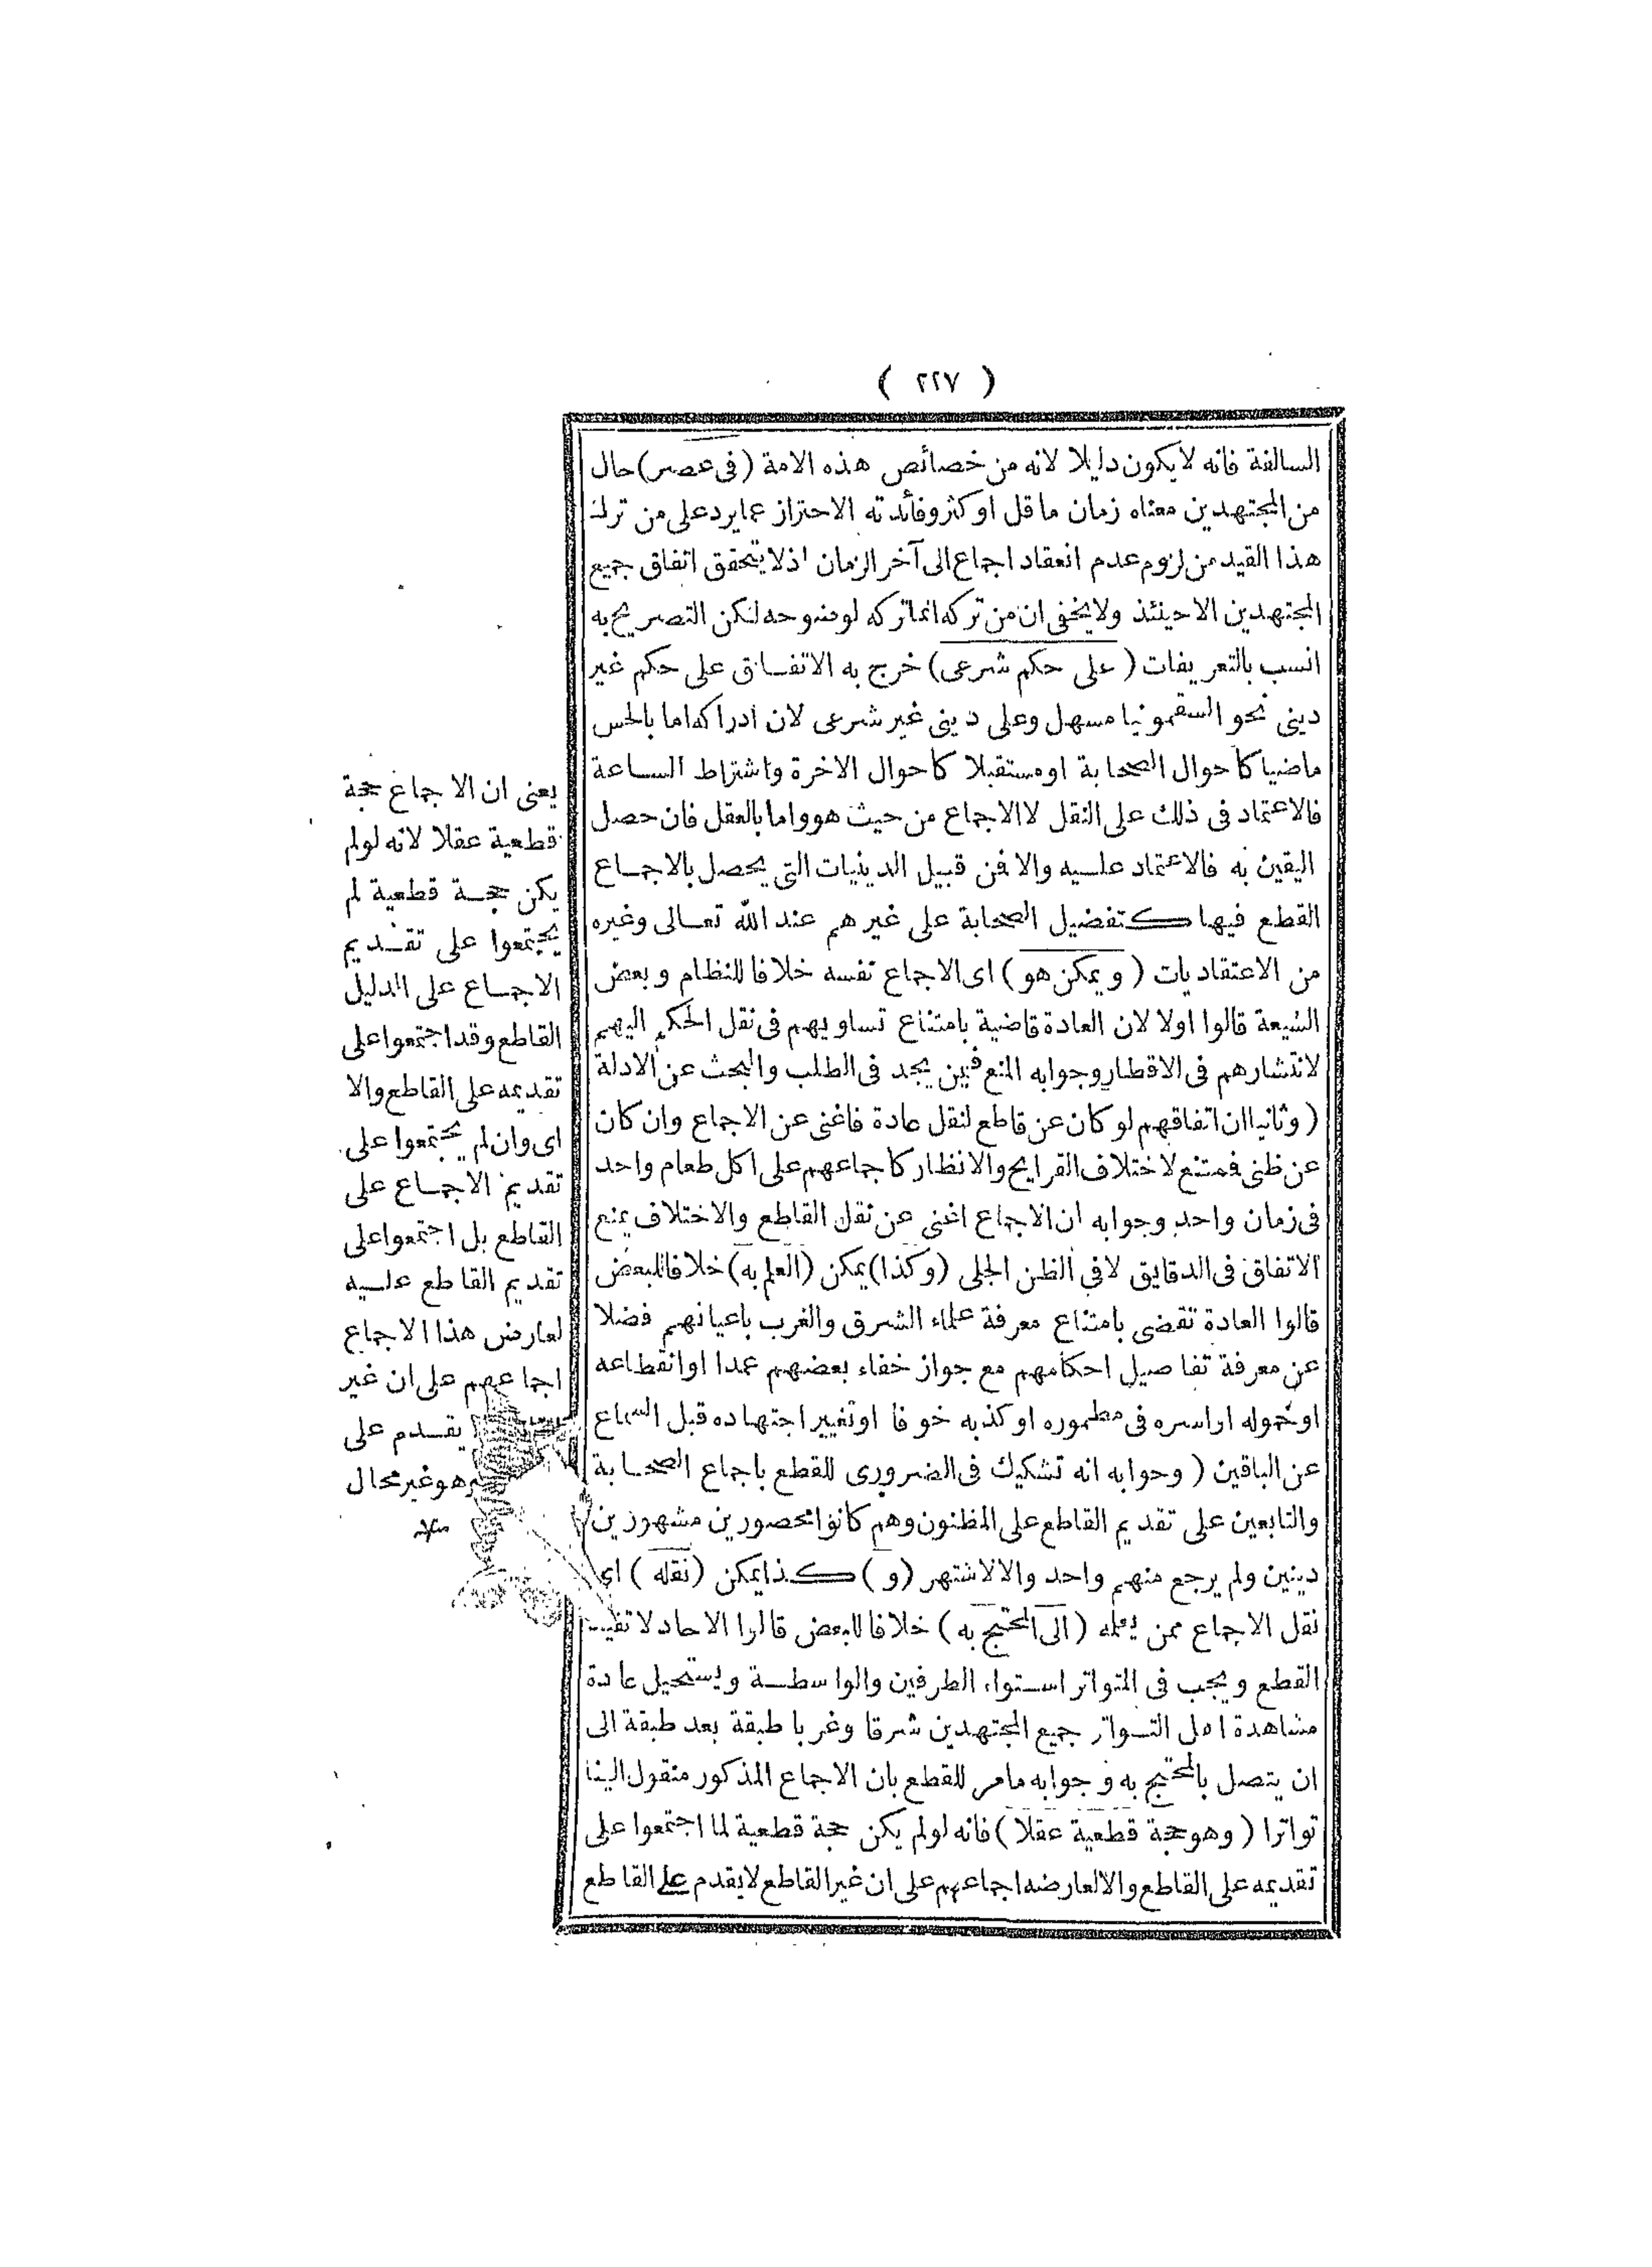 ( ٢٢٧ )
السالفة فانه لا يكون دليلا لانه من خصائص هذه الامة (فى عصر) حال
من المجتهدين معناه زمان ما قل او كثر وفائدته الاحتراز عما يرد على من ترك
هذا القيد من لزوم عدم انعقاد اجماع الى آخر الزمان اذ لا يتحقق اتفاق جميع
المجتهدين الا حينئذ ولا يخفى ان من تركه انما تركه لوضوحه لكن التصريح به
انسب بالتعريفات ( على حكم شرعى ) خرج به الاتفاق على حكم غير
دينى نحو السقمونيا مسهل وعلى دينى غير شرعى لان ادراكه اما بالحس
ماضيا كاحوال الصحابة او مستقبلا كاحوال الاخرة واشتراط الساعة
فالاعتماد فى ذلك على النقل لا الاجماع من حيث هو واما بالعقل فان حصل
اليقين به فالاعتماد عليه والا فمن قبيل الدينيات التى يحصل بالاجماع
القطع فيها كتفضيل الصحابة على غيرهم عند الله تعالى وغيره
من الاعتقاديات ( ويمكن هو ) اى الاجماع نفسه خلافا للنظام وبعض
الشيعة قالوا اولا لان العادة قاضية بامتناع تساويهم فى نقل الحكم اليهم
لانتشارهم فى الاقطار وجوابه المنع فيمن يجد فى الطلب والبحث عن الادلة
( وثانيا ان اتفاقهم لو كان عن قاطع لنقل عادة فاغنى عن الاجماع وان كان
عن ظنى فممتنع لاختلاف القرايح والانظار كاجماعهم على اكل طعام واحد
فى زمان واحد وجوابه ان الاجماع اغنى عن نقل القاطع والاختلاف يمنع
الاتفاق فى الدقايق لا فى الظن الجلى (وكذا) يمكن (العلم به) خلافا للبعض
قالوا العادة تقضى بامتناع معرفة علماء الشرق والغرب باعيانهم فضلا
عن معرفة تفاصيل احكامهم مع جواز خفاء بعضهم عمدا او انقطاعه
او خموله او اسره فى مطموره او كذبه خوفا او تغيير اجتهاده قبل السماع
عن الباقين ( وجوابه انه تشكيك فى الضرورى للقطع باجماع الصحابة
والتابعين على تقديم القاطع على المظنون وهم كانوا محصورين مشهورين
دينين ولم يرجع منهم واحد والا لاشتهر (و) كذا يمكن (نقله ) اى
نقل الاجماع ممن يعلمه ( الى المحتج به ) خلافا للبعض قالوا الاحاد لا تفيد
القطع ويجب فى المتواتر استواء الطرفين والواسطة ويستحيل عادة
مشاهدة اهل التواتر جميع المجتهدين شرقا وغربا طبقة بعد طبقة الى
ان يتصل بالمحتج به وجوابه ما مر للقطع بان الاجماع المذكور منقول الينا
تواترا ( وهو حجة قطعية عقلا ) فانه لو لم يكن حجة قطعية لما اجتمعوا على
تقديمه على القاطع والا لعارضه اجماعهم على ان غير القاطع لا يقدم على القاطع
يعنى ان الاجماع حجة
قطعية عقلا لانه لو لم
يكن حجة قطعية لم
يجتمعوا على تقديم
الاجماع على الدليل
القاطع وقد اجتمعوا على
تقديمه على القاطع والا
اى وان لم يجتمعوا على
تقديم الاجماع على
القاطع بل اجتمعوا على
تقديم القاطع عليه
لعارض هذا الاجماع
اجماعهم على ان غير
يقدم على
هو غير محال
منه